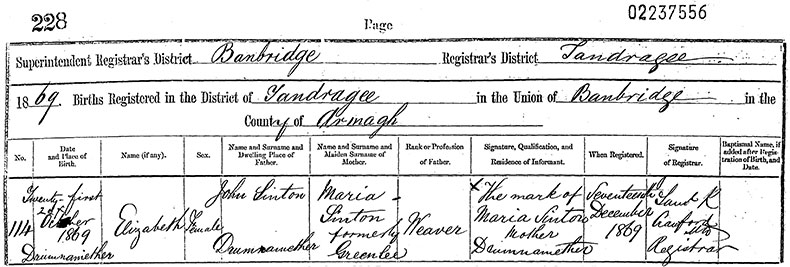 228
Page
02237556
Superintendent Registrar's District Banbridge Registrar's District Tandragee
1869. Births Registered in the District of Tandragee in the Union of Banbridge in the
County of Armagh
No. Date and Place of Birth. Name (if any). Sex. Name and Surname and Dwelling Place of Father. Name and Surname and Maiden Surname of Mother. Rank or Profession of Father. Signature, Qualification, and Residence of Informant. When Registered. Signature of Registrar. Baptismal Name, if added after Registration of Birth, and Date.
114 Twenty-first October 1869 Drumnamether Elizabeth Female John Sinton Drumnamether Maria Sinton formerly Greenlee Weaver X The mark of Maria Sinton Mother Drumnamether Seventeenth December 1869 Crawford Registrar